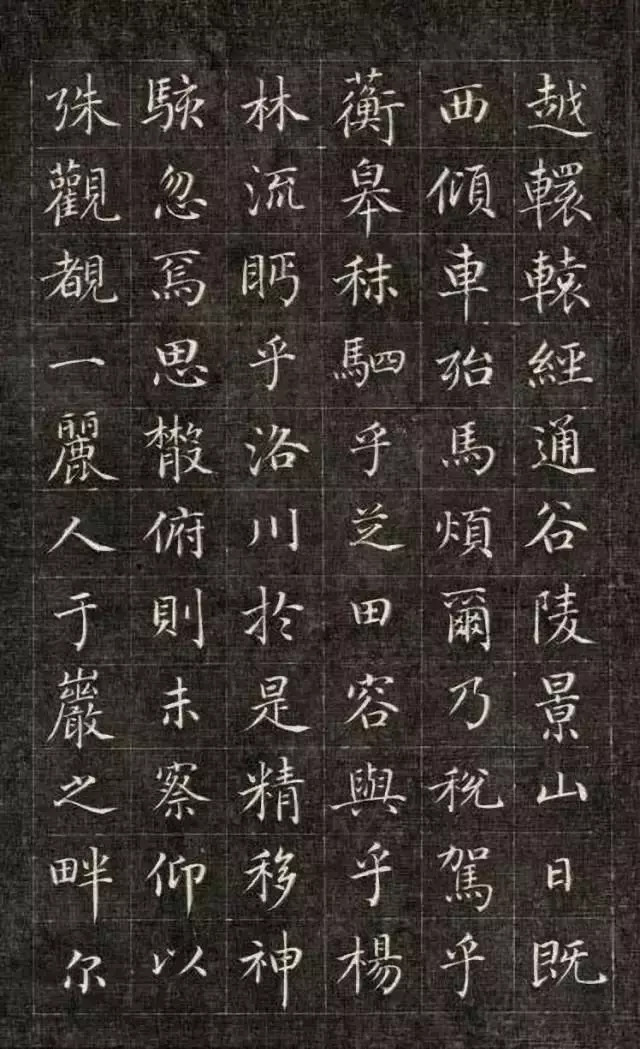 越轘轅經通谷陵景山日既
西傾車殆馬煩爾乃稅駕乎
蘅皋秣駟乎芝田容與乎楊
林流眄乎洛川於是精移神
駭忽焉思散俯則未察仰以
殊觀覩一麗人于巖之畔尔